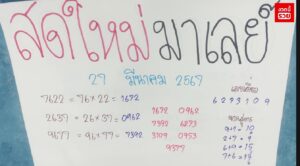 สดใหม่มาเลย์
27 มีนาคม 2567
7622 = 76×22 = 1672
2637 = 26×37 = 0962
9677 = 96×77 = 7392
1672 0962
7392 6273
3109 0953
9377
6273109
9+1 = 10